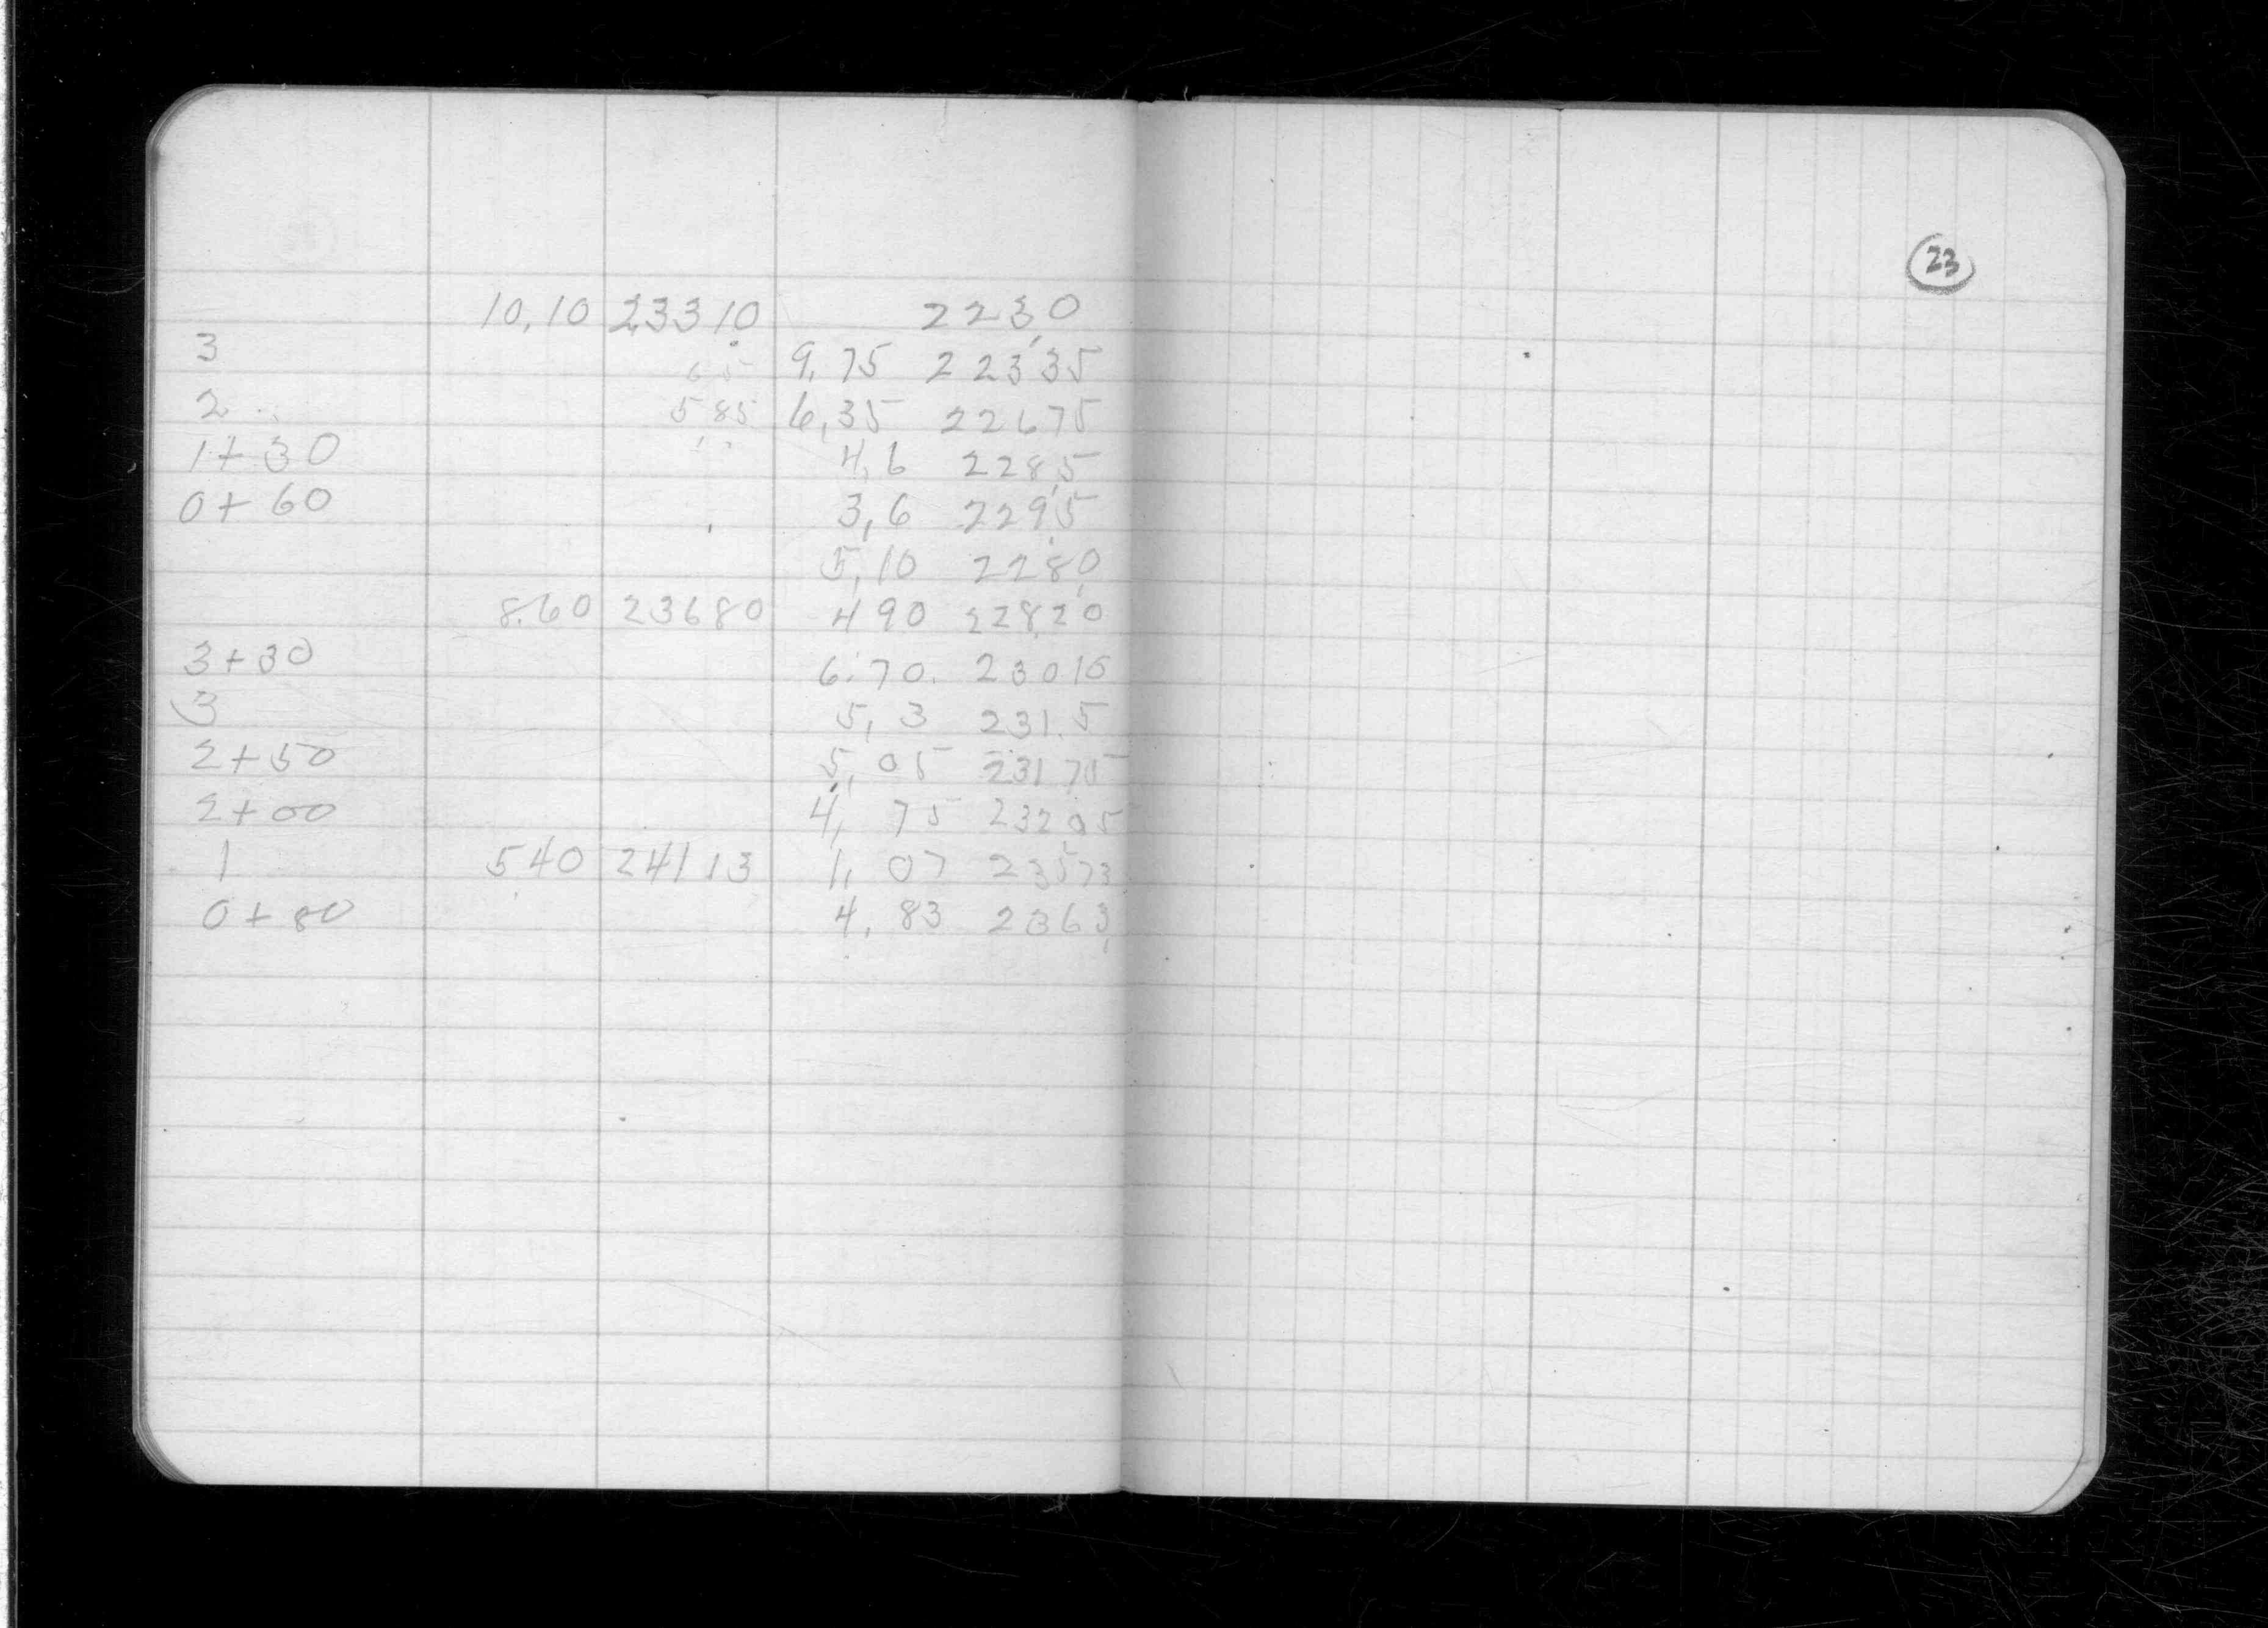 23
10,10 23310 2230
3 65 9,75 22335
2 585 6,35 22675
1+30 4,6 2285
0+60 3,6 2295
5,10 2280
8.60 23680 490 22820
3+30 6.70. 23010
3 5,3 231.5
2+50 5,05 23175
2+00 4,75 23205
1 540 24113 1,07 23573
0+80 4,83 2363